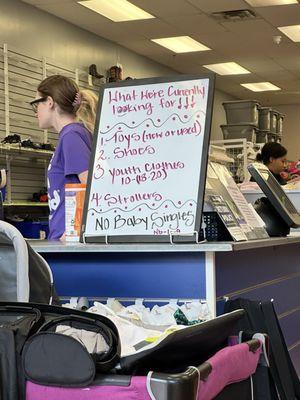 What We're Currently
looking for ↓↓↓
1. Toys (new or used)
2. Shoes
3. Youth Clothes
10-(18-20)
4. Strollers
No Baby Singles